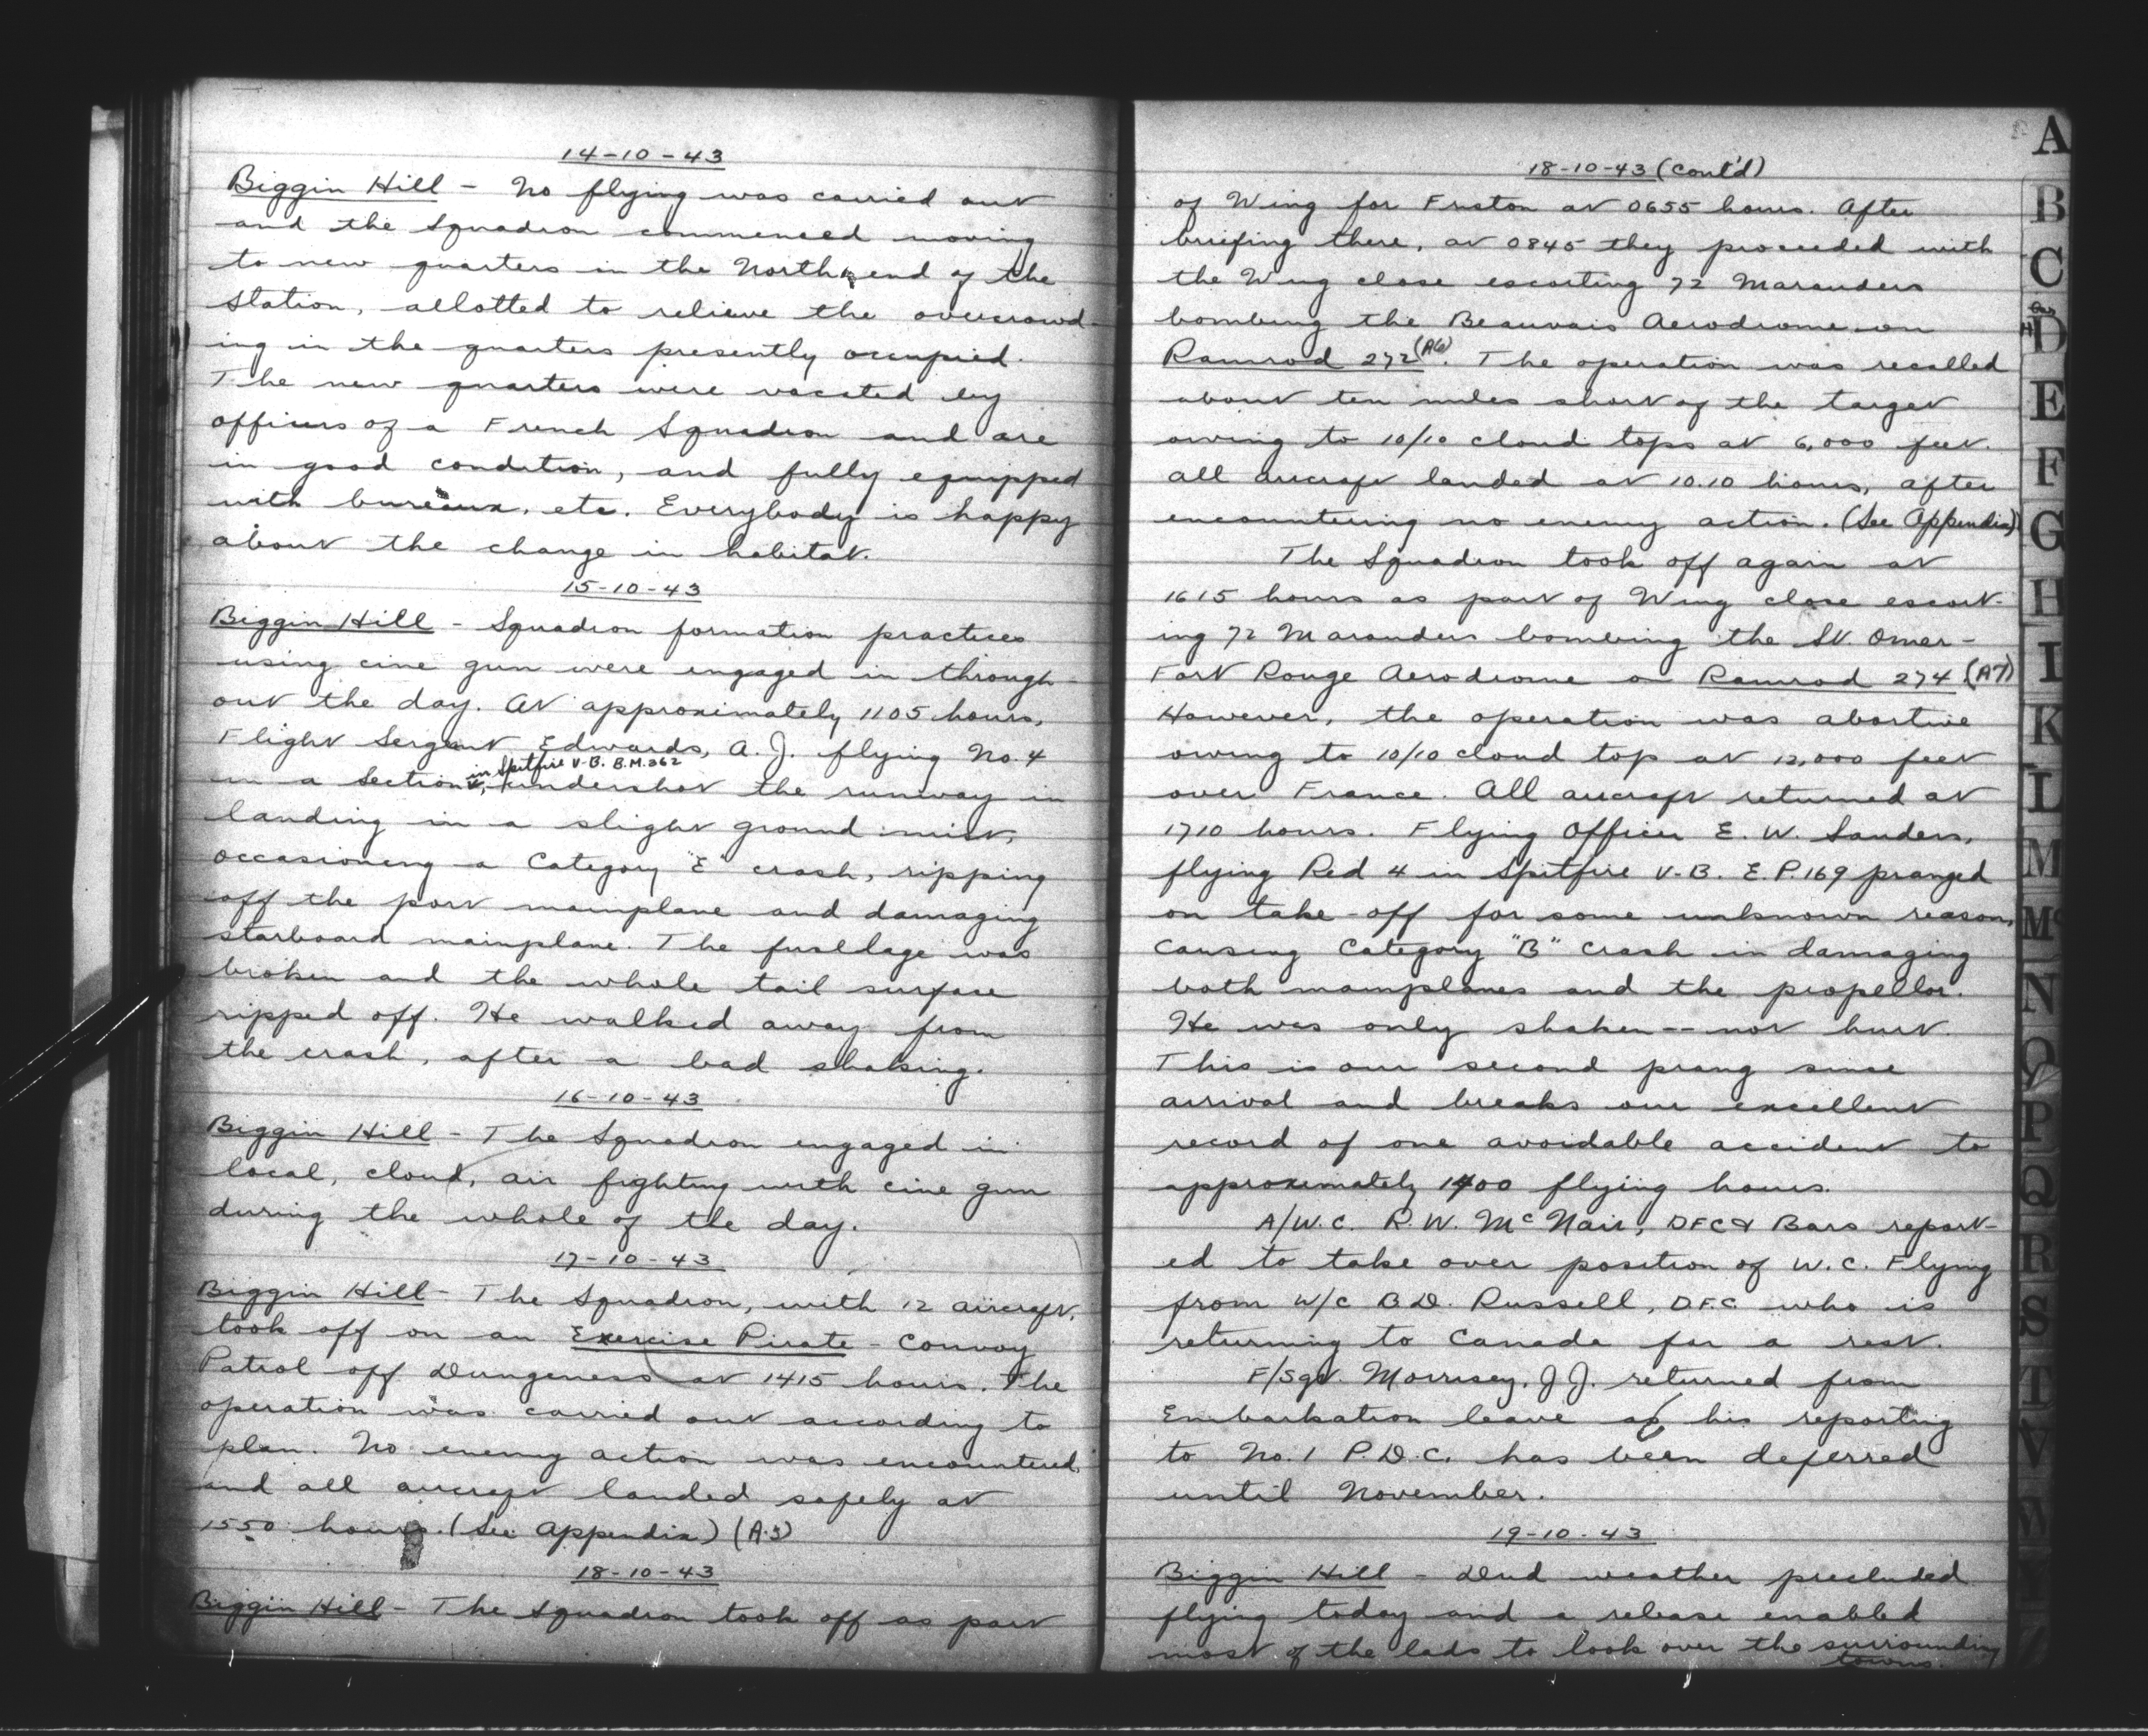 14-10-43
Biggin Hill - No flying was carried out
and the Squadron commenced moving
to new quarters in the North end of the
station, allotted to relieve the overcrowd-
ing in the quarters presently occupied.
The new quarters were vacated by
officers of a French Squadron and are
in good condition, and fully equipped
with bureaux, etc. Everybody is happy
about the change in habitat.
15-10-43
Biggin Hill - Squadron formation practices
using cine gun were engaged in through-
out the day. At approximately 1105 hours,
Flight Sergent Edwards, A. J. flying No. 4
in Spitfire V-B. B.M.362
in a Section, undershot the runway in
landing in a slight ground mist,
occasioning a Category "E" crash, ripping
off the port mainplane and damaging
starboard mainplane. The fuseldage was
broken and the whole tail surface
ripped off. He walked away from
the crash, after a bad shaking.
16-10-43
Biggin Hill - The Squadron engaged in
local, cloud, air fighting with cine gun
during the whole of the day.
17-10-43
Biggin Hill - The Squadron, with 12 aircraft,
took off on an Exercise Pirate - Convoy
Patrol off Dungeness at 1415 hours. The
operation was carried out according to
plan. No enemy action was encountered,
and all aircraft landed safely at
1550 hours. (See Appendix) (A.5)
18-10-43
Biggin Hill - The Squadron took off as part
18-10-43 (cont'd)
of Wing for Friston at 0655 hours. After
briefing there, at 0845 they proceeded with
the Wing close escorting 72 Marauders
bombing the Beauvais Aerodrome on
Ramrod 272 (A6). The operation was recalled
about ten miles short of the target
owing to 10/10 cloud tops at 6,000 feet.
All aircraft landed at 10.10 hours, after
encountering no enemy action. (See Appendix)
The Squadron took off again at
1615 hours as part of Wing close escort-
ing 72 Marauders bombing the St. Omer-
Fort Rouge Aerodrome on Ramrod 274 (A7)
However, the operation was abortive
owing to 10/10 cloud top at 12,000 feet
over France. All aircraft returned at
1710 hours. Flying Officer E. W. Sanders,
flying Red 4 in Spitfire V-B. E.P.169 pranged
on take-off for some unknown reason,
causing Category "B" crash in damaging
both mainplanes and the propellor.
He was only shaken -- not hurt.
This is our second prang since
arrival and breaks our excellent
record of one avoidable accident to
approximately 1400 flying hours.
A/W.C. R. W. McNair, DFC & Bars report-
ed to take over position of W.C. Flying
from W/C B.D. Russell, D.F.C. who is
returning to Canada for a rest.
F/Sgt. Morrisey, J J. returned from
Embarkation leave as his reporting
to No. 1 P.D.C. has been deferred
until November.
19-10-43
Biggin Hill - Dud weather precluded
flying today and a release enabled
most of the lads to look over the surrounding
towns.
A
B
C
D
E
F
G
H
I
K
L
M
Mc
N
O
P
Q
R
S
T
V
W
Y
Z